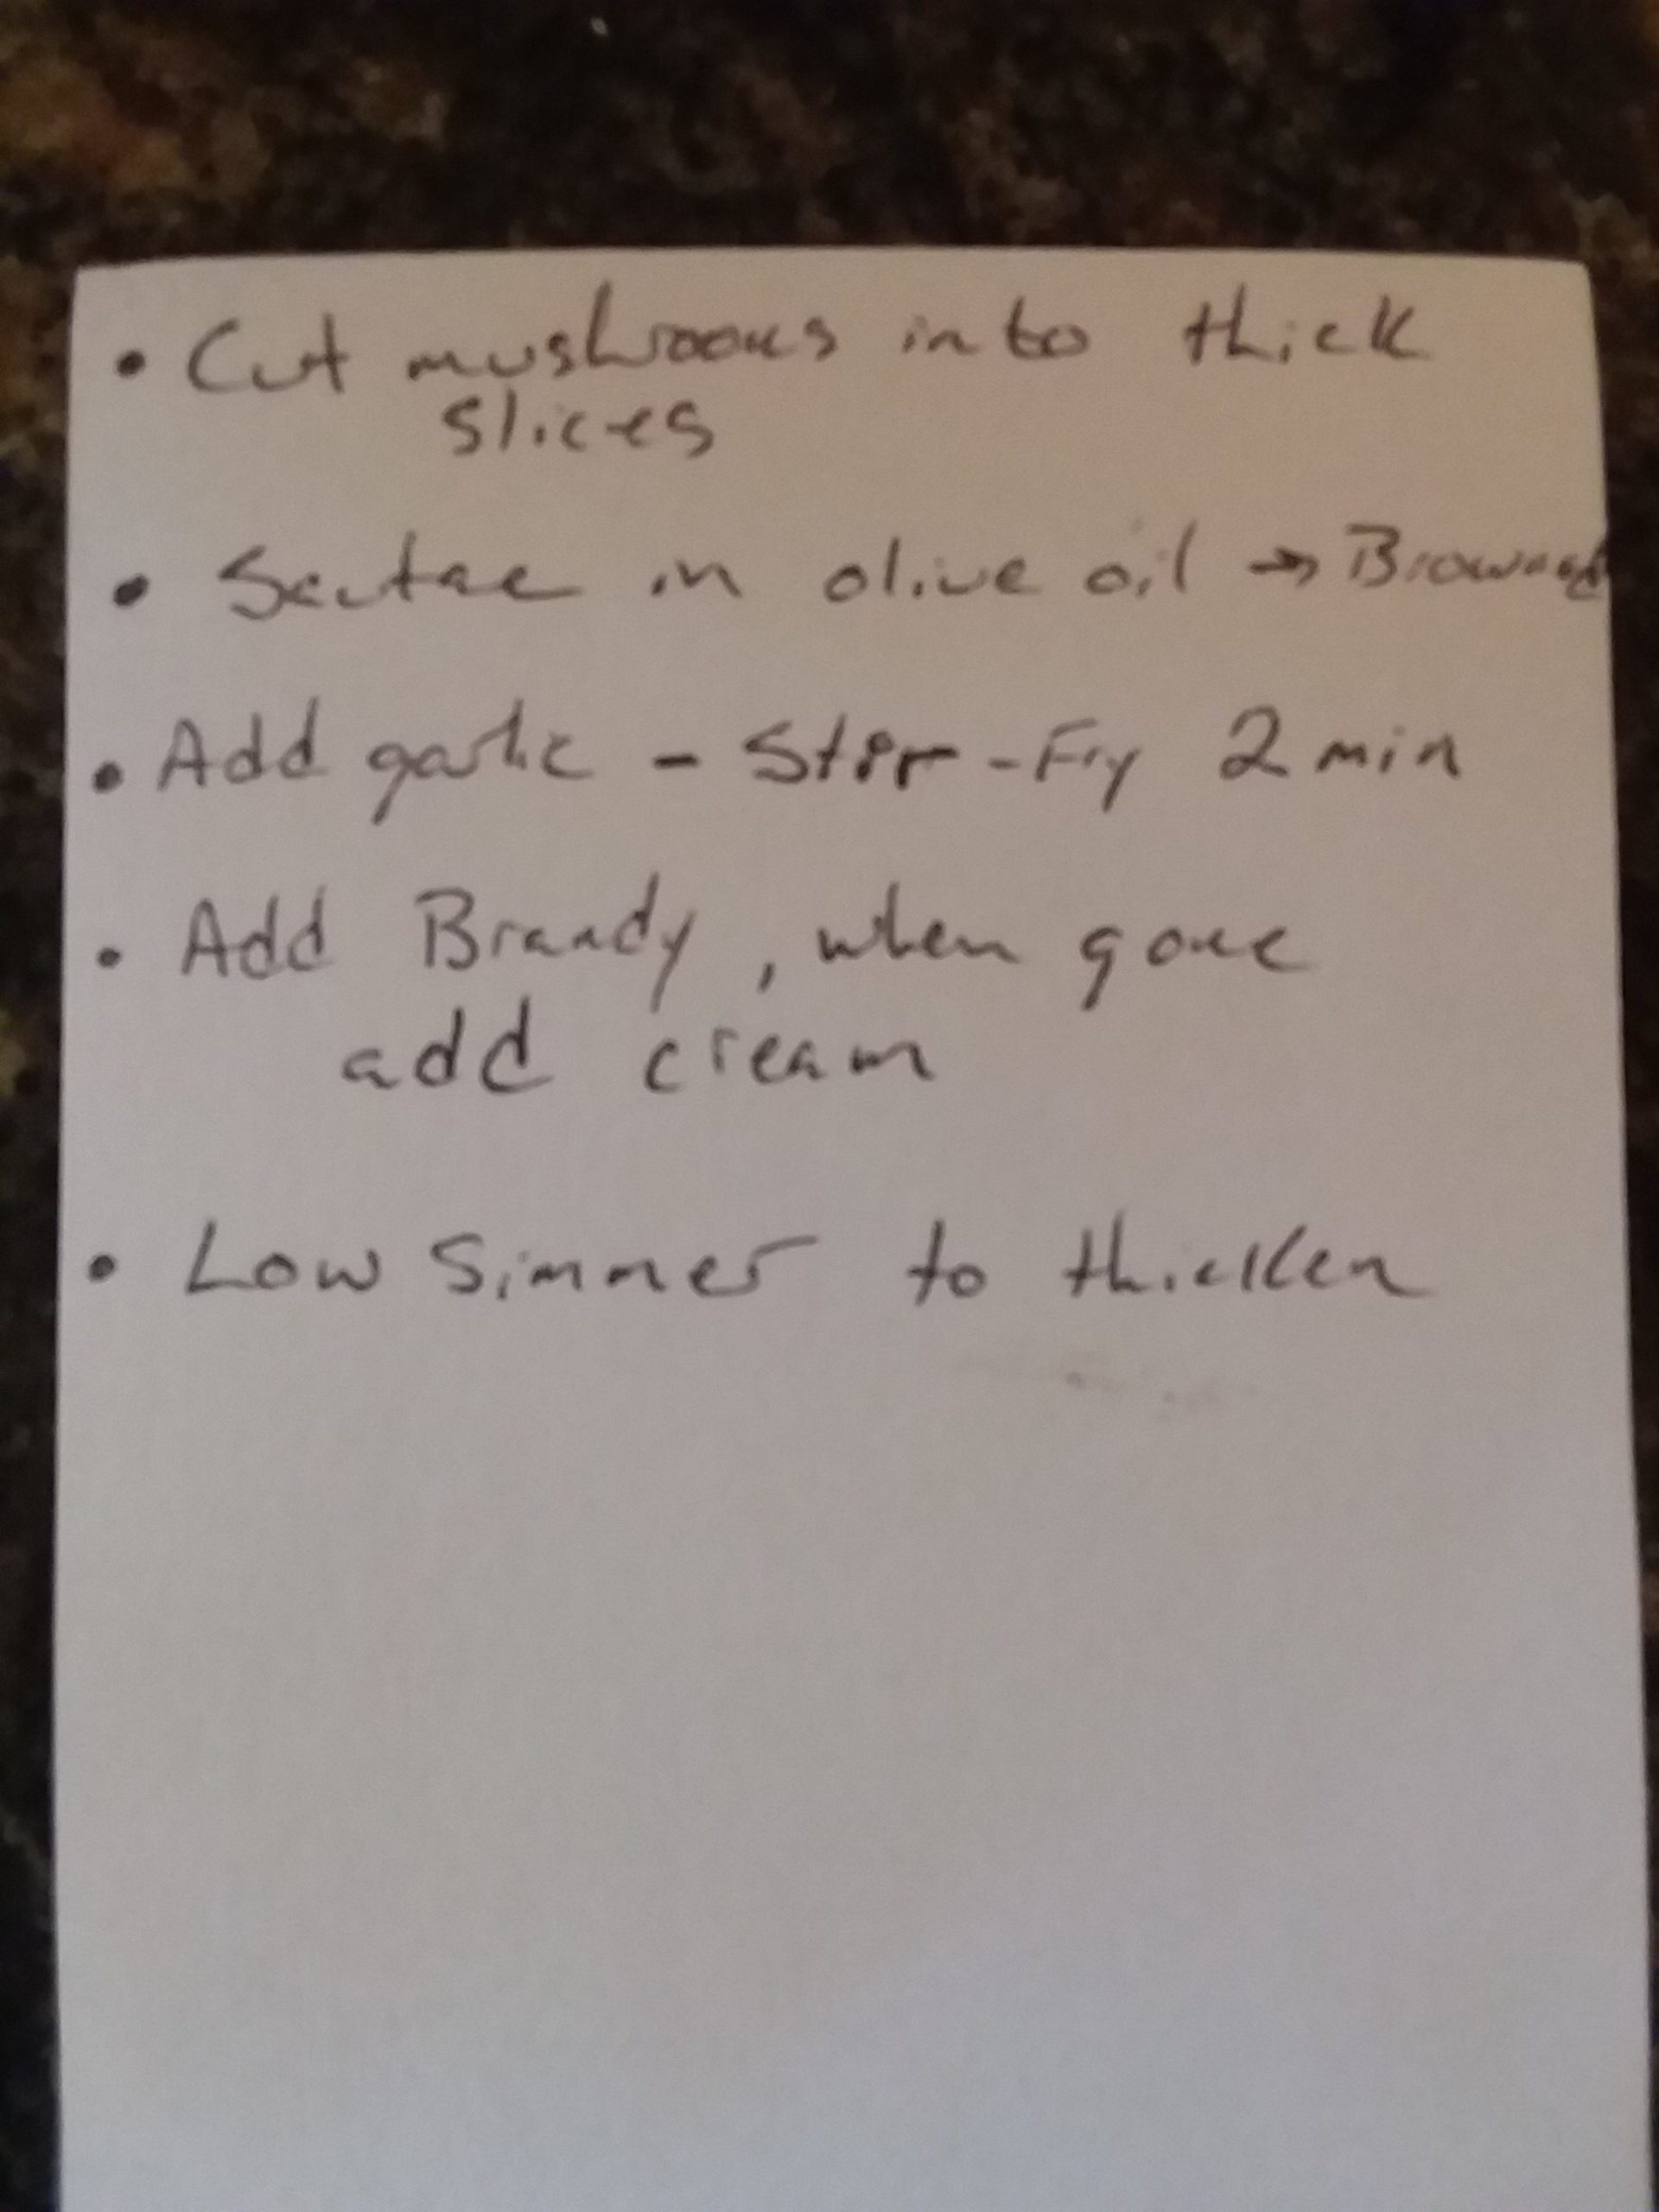 • Cut mushrooms into thick
slices
• Sautae in olive oil → Browned
• Add garlic - Stir-Fry 2 min
• Add Brandy, when gone
add cream
• Low Simmer to thicken